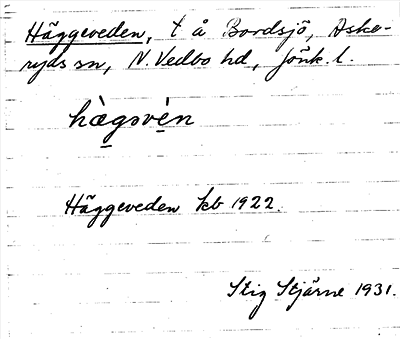 Häggeveden, t å Bordsjö, Aske-
ryds sn, N. Vedbo hd, Jönk. l.
hàgəvèn
Häggeveden kb 1922.
Stig Stjärne 1931.